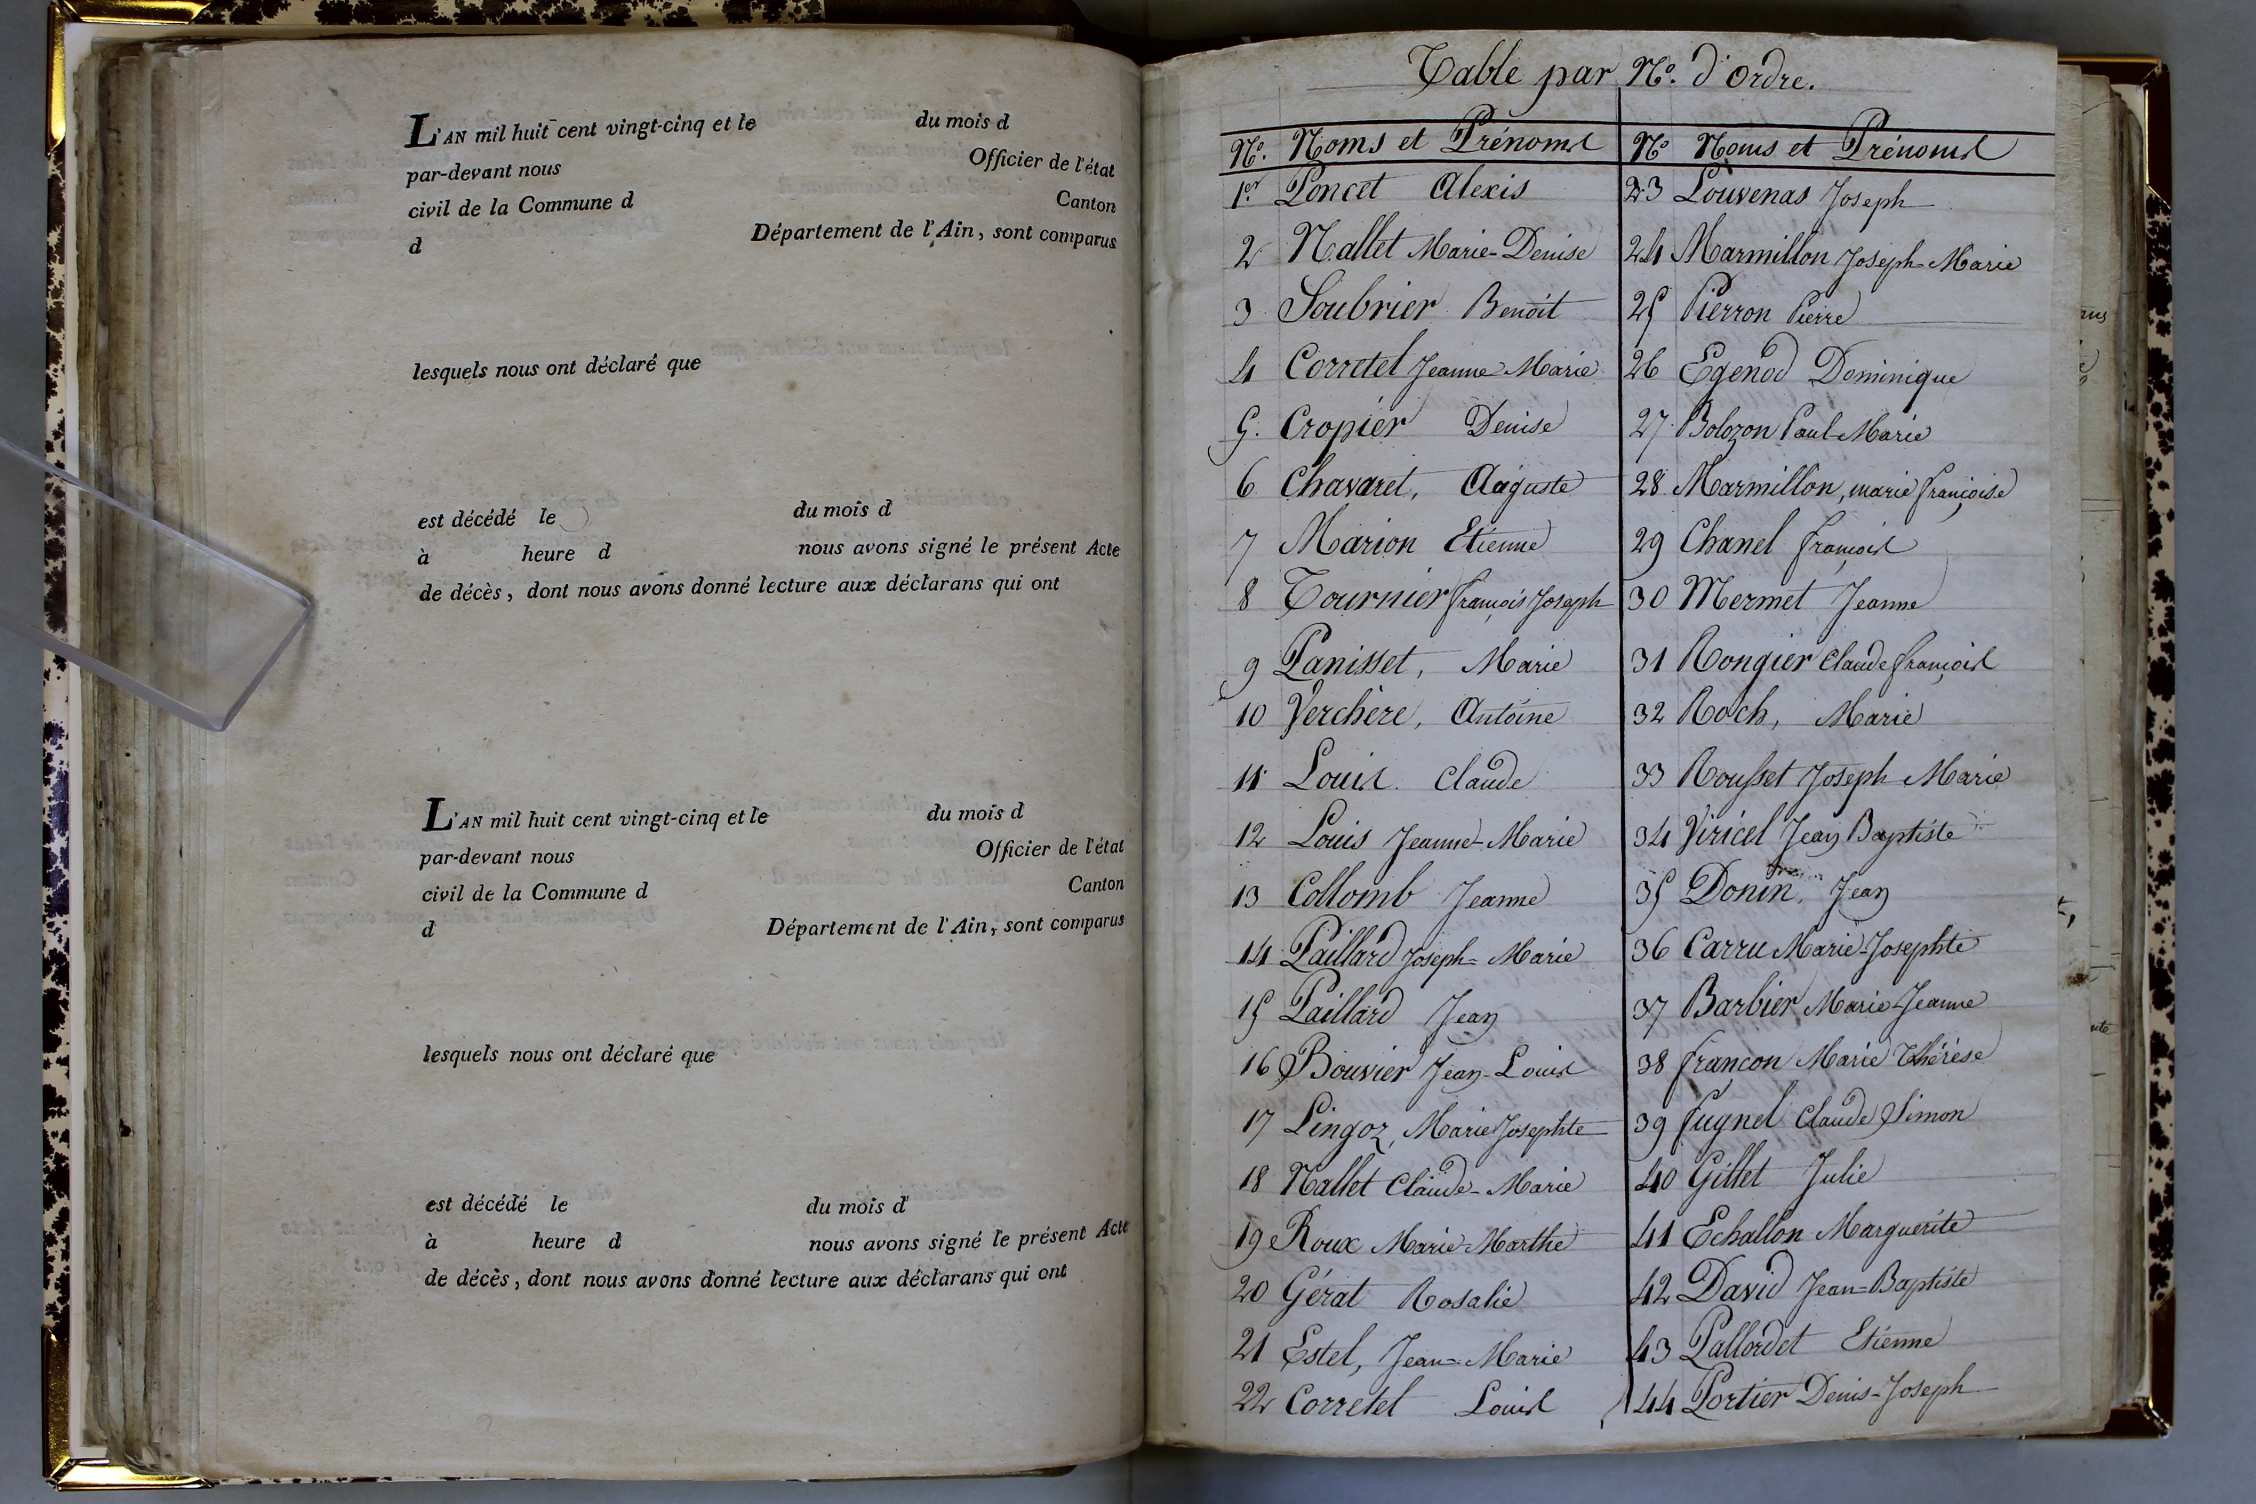 L'AN mil huit cent vingt-cinq et le du mois d
par-devant nous Officier de l'état
civil de la Commune d Canton
d Département de l'Ain, sont comparus
lesquels nous ont déclaré que
est décédé le du mois d
à heure d nous avons signé le présent Acte
de décès, dont nous avons donné lecture aux déclarans qui ont
L'AN mil huit cent vingt-cinq et le du mois d
par-devant nous Officier de l'état
civil de la Commune d Canton
d Département de l'Ain, sont comparus
lesquels nous ont déclaré que
est décédé le du mois d
à heure d nous avons signé le présent Acte
de décès, dont nous avons donné lecture aux déclarans qui ont
Table par No. d'ordre.
No. Noms et Prénoms
1er Poncet Alexis
2 Nallet Marie-Denise
3 Soubrier Benoit
4 Corretel Jeanne Marie
5. Cropier Denise
6 Chavaret, Auguste
7 Marion Etienne
8 Tournier François Joseph
9 Panisset, Marie
10 Verchère, Antoine
11 Louis Claude
12 Louis Jeanne-Marie
13 Collomb Jeanne
14 Paillard Joseph-Marie
15 Paillard Jean
16 Bouvier Jean-Louis
17 Lingoz, Marie Josephte
18 Nallet Claude-Marie
19 Roux Marie-Marthe
20 Gérat Rosalie
21 Estel, Jean-Marie
22 Corretel Louis
No Noms et Prénoms
23 Louvenas Joseph
24 Marmillon Joseph-Marie
25 Pierron Pierre
26 Egenod Dominique
27 Bolozon Paul-Marie
28 Marmillon, marie françoise
29 Chanel françois
30 Mermet Jeanne
31 Rongier Claude françois
32 Roch, Marie
33 Rousset Joseph-Marie
34 Viricel Jean Baptiste
35 Donin, Jean
36 Carru Marie-Josephte
37 Barbier Marie-Jeanne
38 francon Marie Thérèse
39 fugnel Claude Simon
40 Gillet Julie
41 Echallon Marguerite
42 David Jean-Baptiste
43 Pallordet Etienne
44 Portier Denis-Joseph